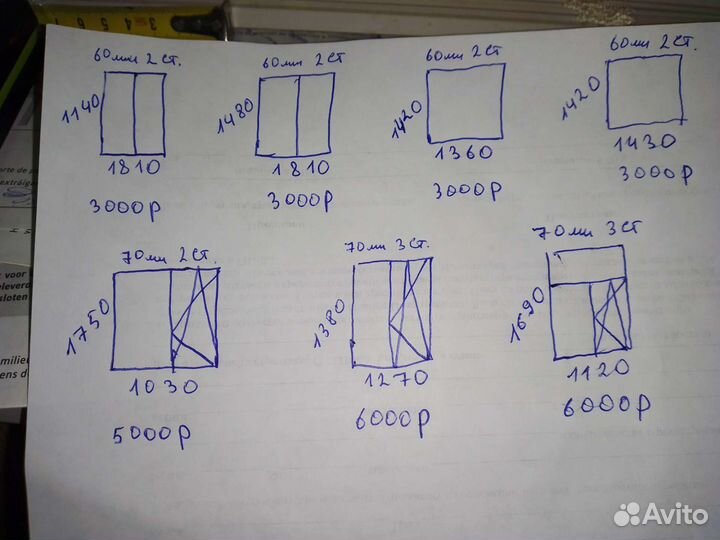 60мм 2 ст.
1140
1810
3000р
60мм 2 ст
1480
1810
3000р
60мм 2 ст
1420
1360
3000р
60мм 2 ст
1420
1430
3000р
70мм 2 ст.
1750
1030
5000р
70мм 3 ст.
1380
1270
6000р
70мм 3 ст
1690
1120
6000р
Avito